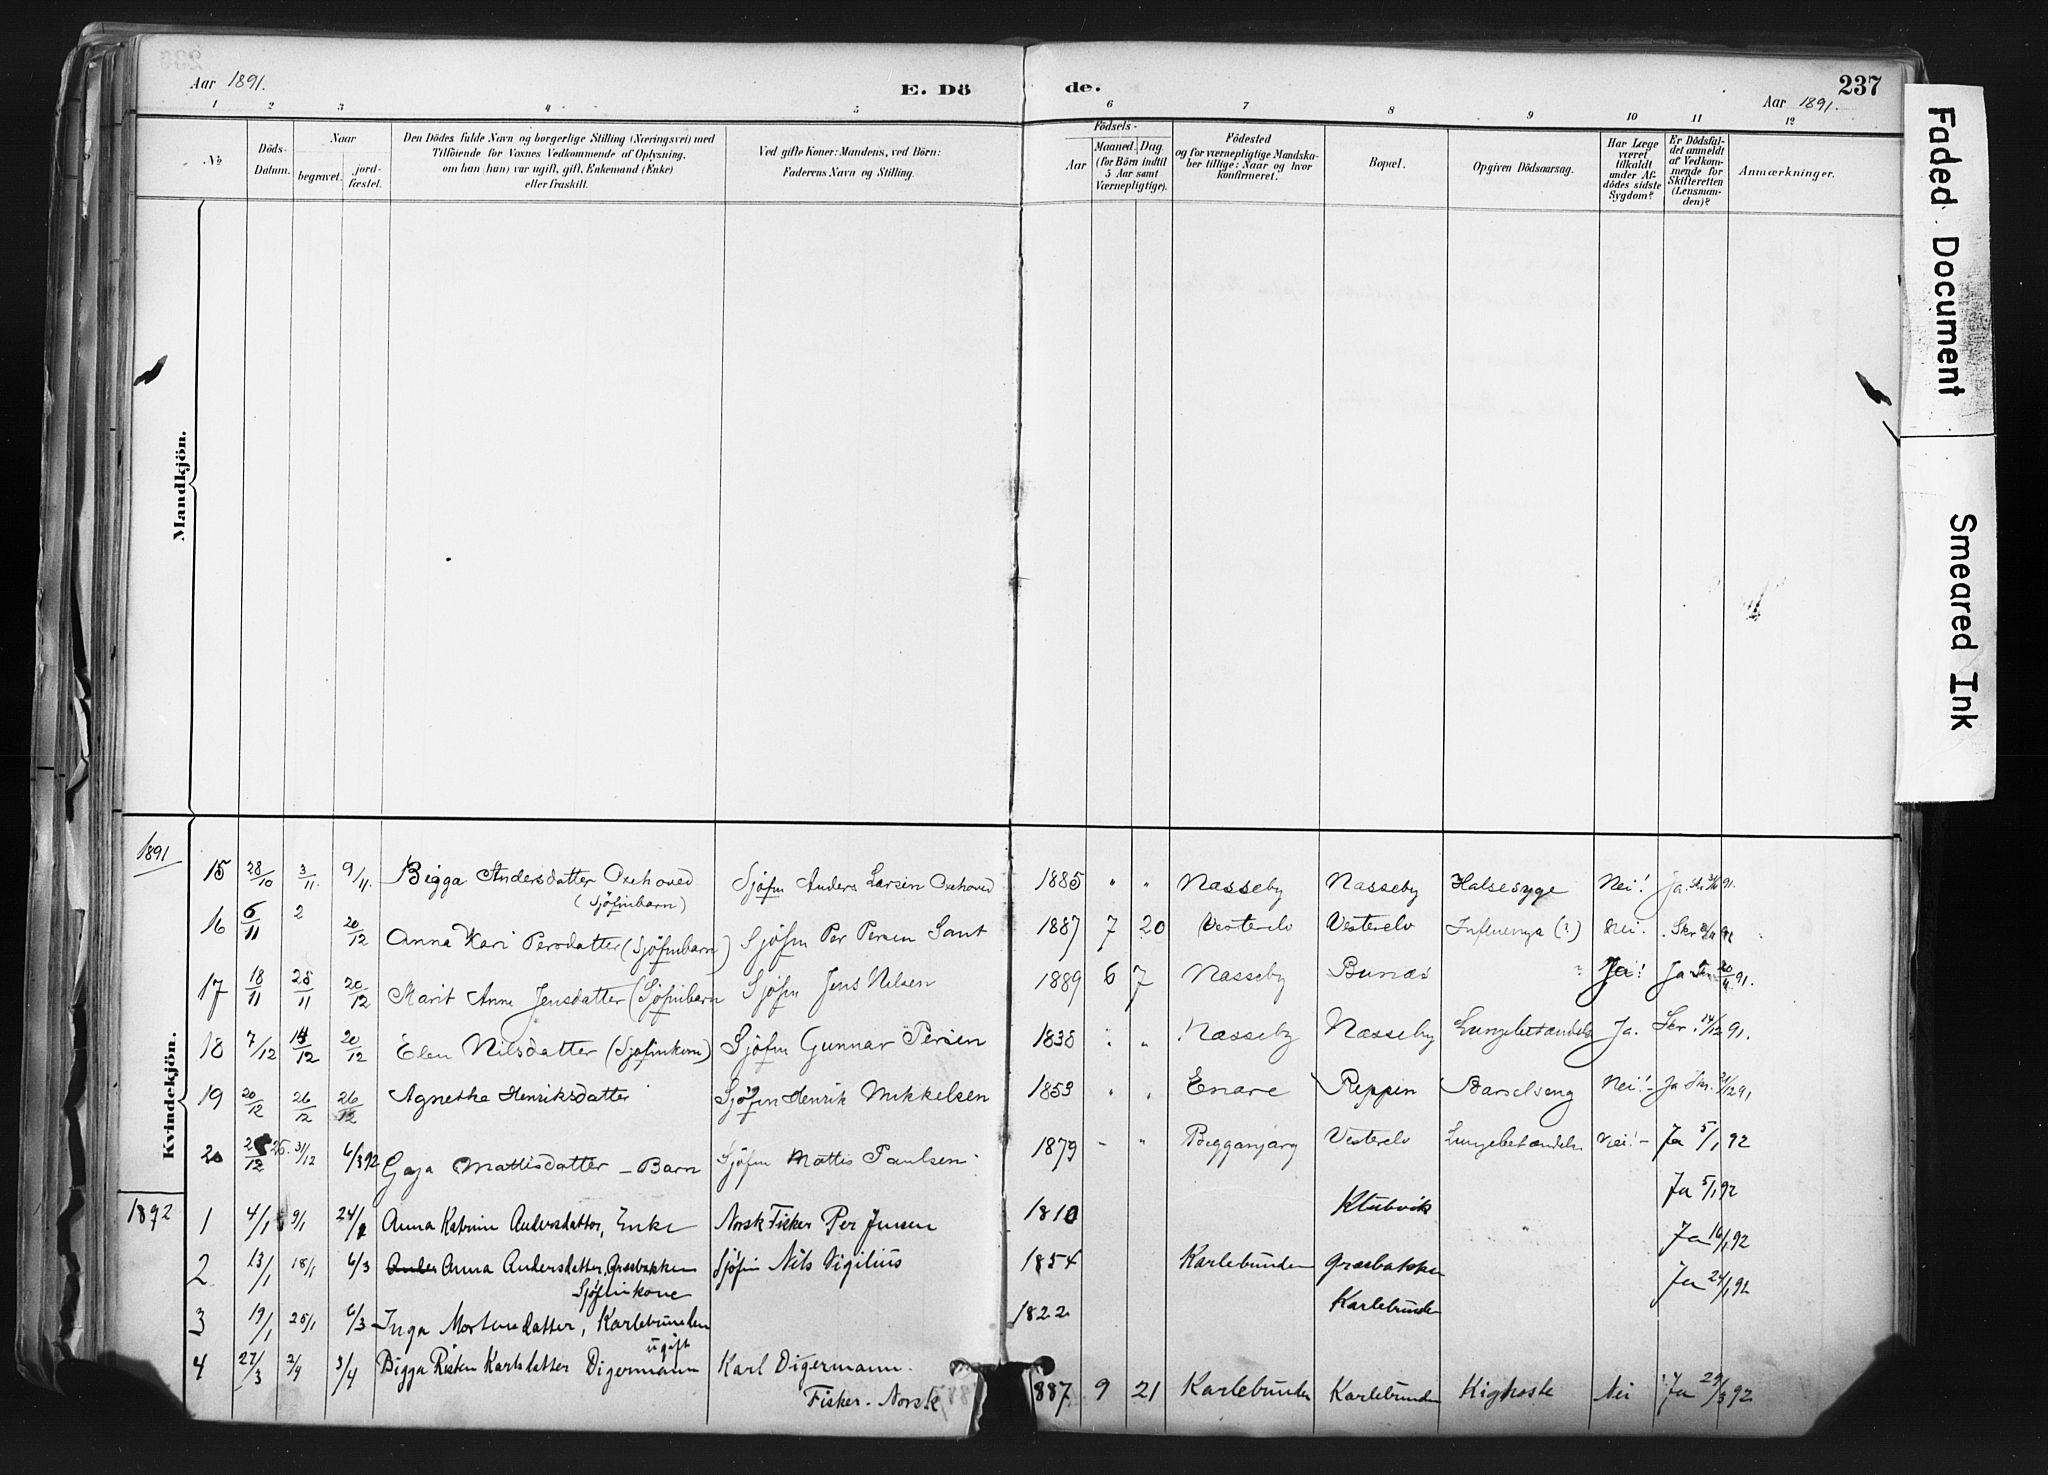 Aar 1891.
E. Dö
de.
237
Aar 1891.
1 2 3 4 5 6 7 8 9 10 11 12
No
Döds-Datum.
Naar
begravet.
jord-fæstet.
Den Dödes fulde Navn og borgerlige Stilling (Næringsvei) med
Tilföiende for Voxnes Vedkommende af Oplysning,
om han (hun) var ugift, gift, Enkemand (Enke)
eller fraskilt.
Ved gifte Koner: Mandens, ved Börn:
Faderens Navn og Stilling.
Födsels-
Aar
Maaned. Dag.
(for Börn indtil
5 Aar samt
Værnepligtige).
Födested
og for værnepligtige Mandska-
ber tillige: Naar og hvor
konfirmeret.
Bopæl.
Opgiven Dödsaarsag.
Har Læge
været
tilkaldt
under Af-
dödes sidste
Sygdom?
Er Dödsfal-
det anmeldt
af Vedkom-
mende for
Skifteretten
(Lensman-
den)?
Anmærkninger.
Faded Document
Smeared Ink
Mandkjön.
Kvindekjön.
1891
15 28/10 3/11. 9/11. Bigga Andersdatter Oxehoved Sjøfin Anders Larsen Oxehoved 1885 " " Næsseby Næsseby Halsesyge Nei! Ja.
(Sjøfinbarn)
16 6/11 2 20/12 Anna Kari Persdatter (Sjøfinbarn) Sjøfin Per Persen 1887 7 20 Vesterelv Vesterelv Influenza (?) Nei. Skr
17 18/11 25/11 20/12 Marit Anne Jensdatter (Sjøfinbarn Sjøfin Jens Nilsen 1889 6 7 Næsseby Bunæs ? Ja! Ja 91.
18 7/12 14/12 20/12 Elen Nilsdatter (Sjøfinkone) Sjøfin Gunnar Persen 1838 " " Næsseby Næsseby Lungebetændelse Ja. Skr. 14/12 91.
19 20/12 26/12 26/12 Agnethe Henriksdatter Sjøfin Henrik Mikkelsen 1853 " " Enare Reppen Barselseng Nei! Ja Skr. 91
20 31/12 6/3 92 Gaja Mattisdatter - Barn Sjøfin Mattis Paulsen 1879 - " Begganjarg Vesterelv Lungebetændelse Nei! - Ja 5/1 92
1892
1 4/1 9/1 Anna Katrine Andersdatter, Enke Norsk Fisker Per Jensen 1810 Klubvik Ja 5/1 92
2 13/1 18/1 6/3 Anna Andersdatter, Græsbakken Sjøfin Nils Vigilius 1854 Karlebunden Græsbakken Ja 16/1 92
Sjøfinkone
3 19/1 25/1 6/3 Inga Mortensdatter, Karlebunden 1822 Karlebunden Ja 24/1 92
ugift
4 27/3 2/4 3/4 Bigga Risten Karlsdatter Digermann Karl Digermann. 887 9 21 Karlebunden Karlebunden Kighoste Nei Ja 29/3 92
Fisker. Norsk